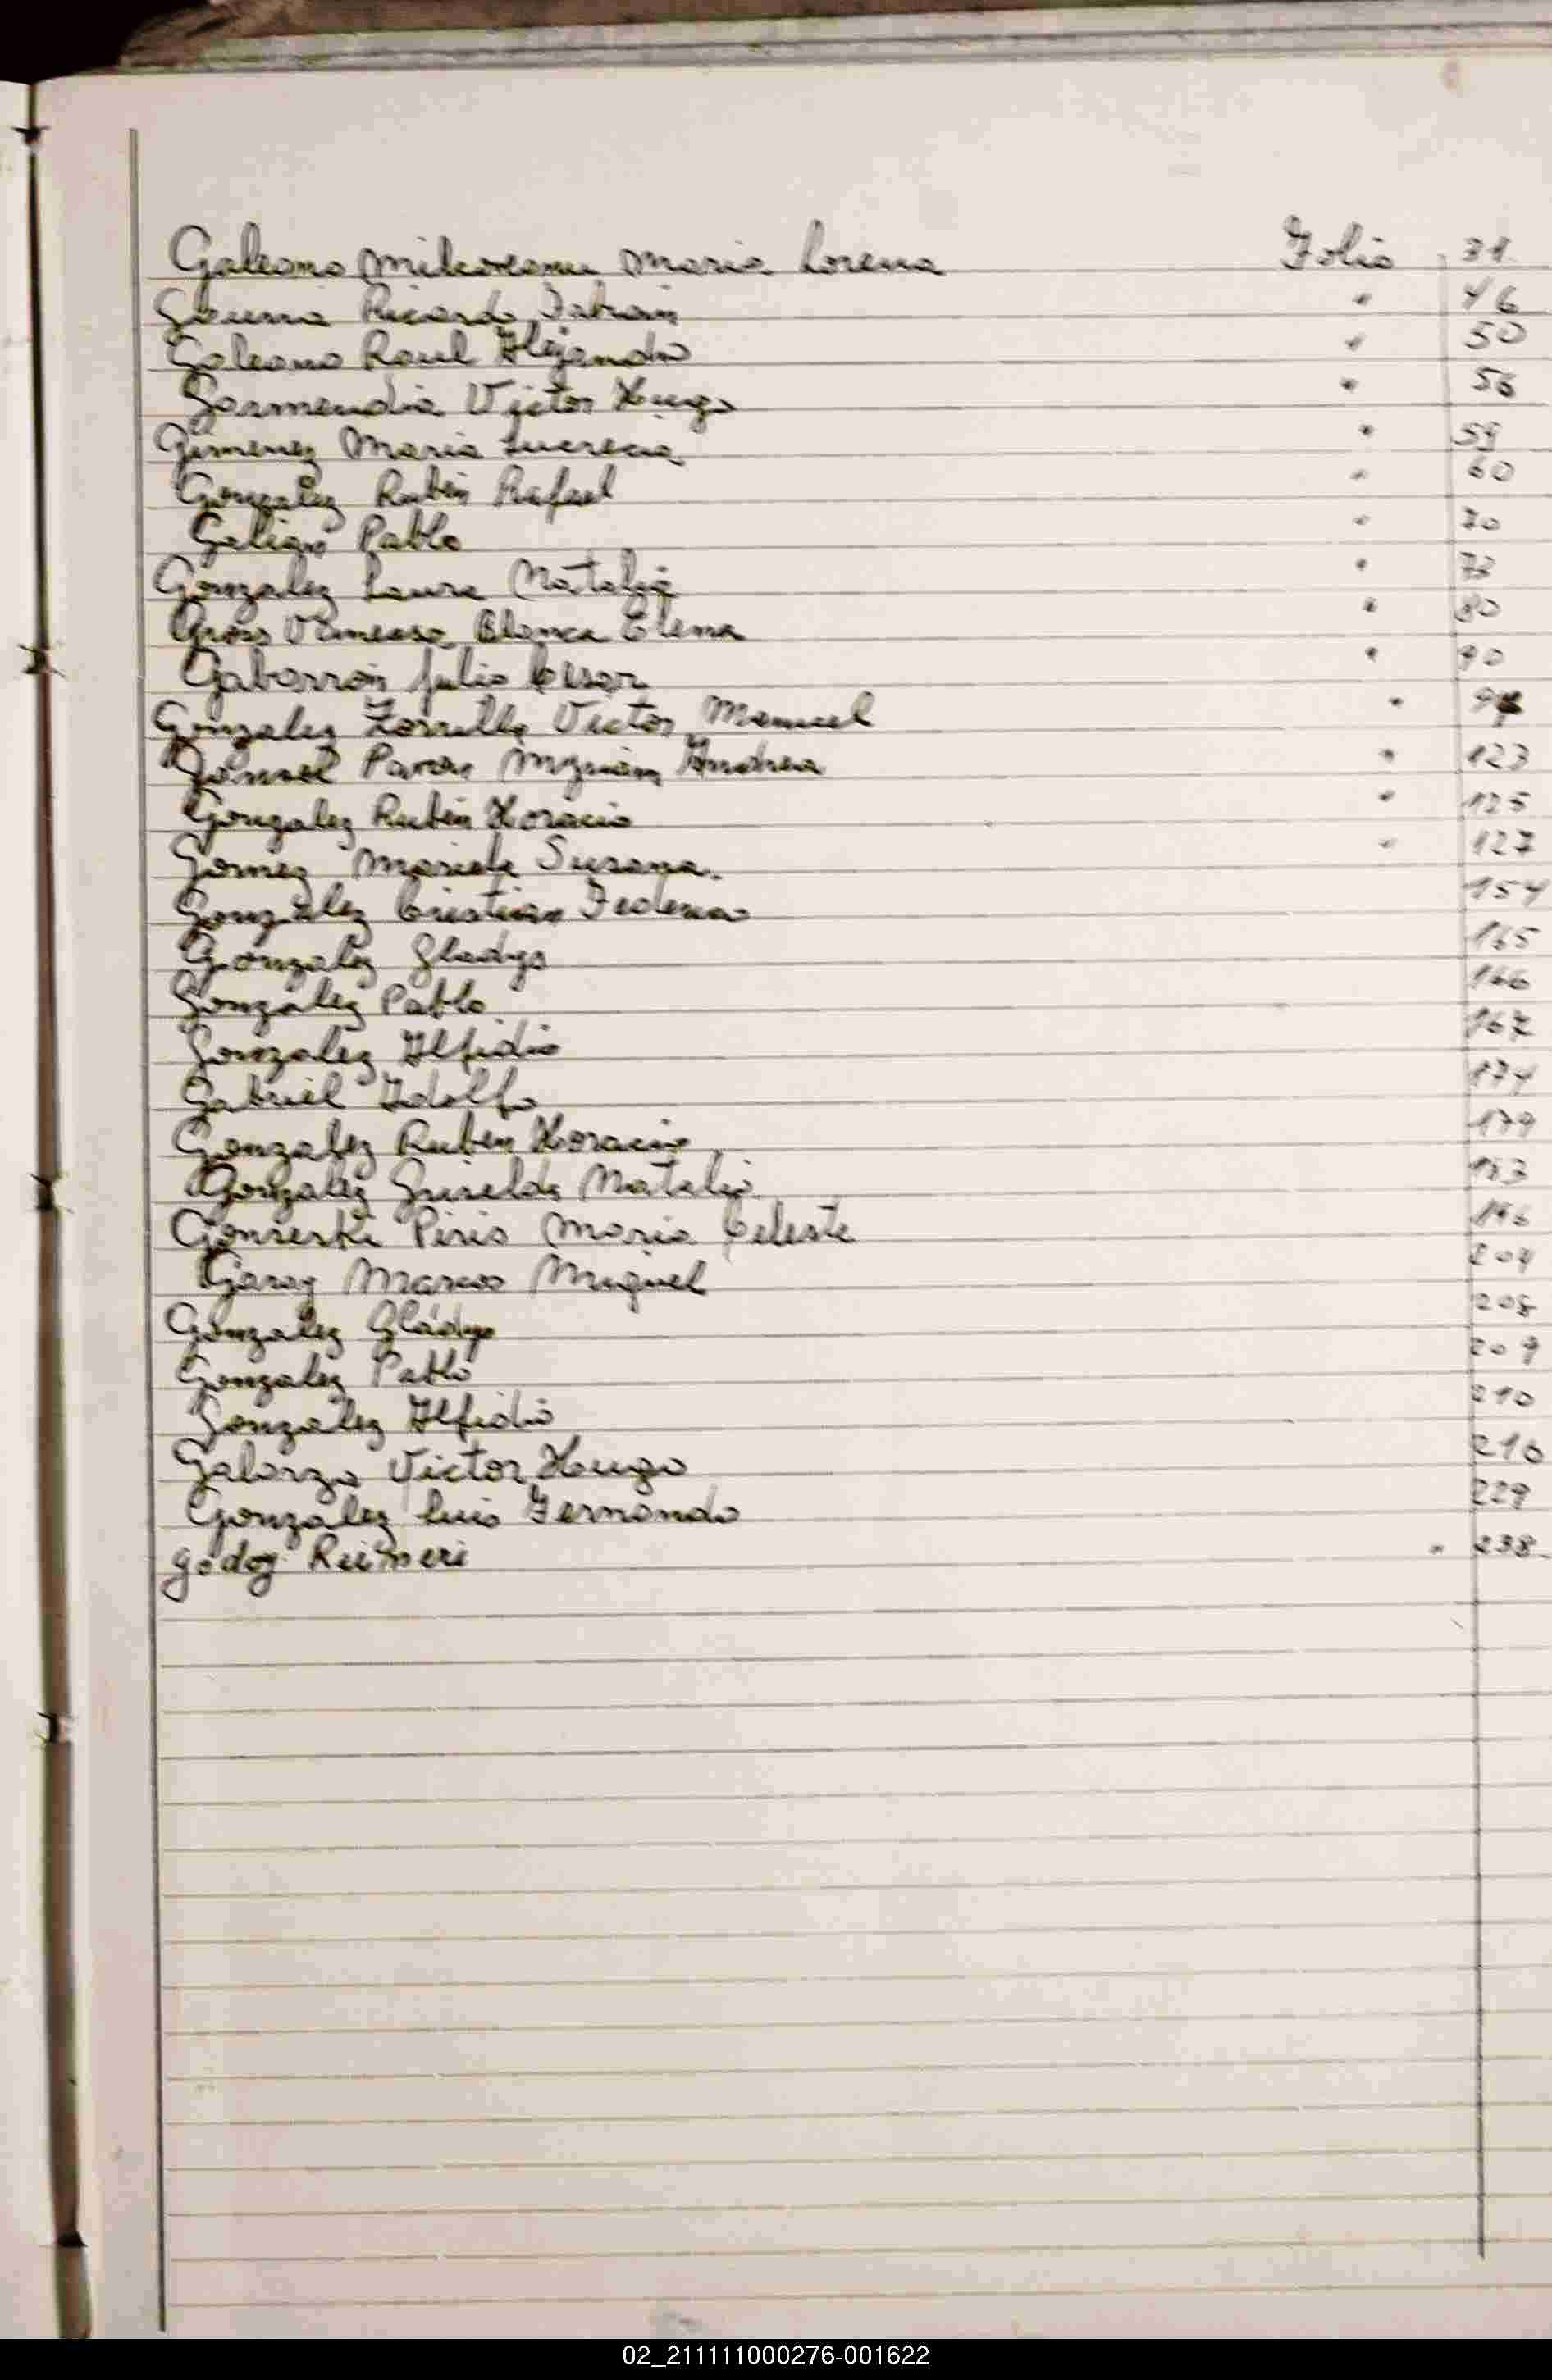 Galeano Maria Lorena Folio 31
Ricardo Fabian " 46
Galeano Raul Alejandro " 50
Garmendia Victor Hugo " 56
Gimenez Maria Lucrecia " 59
Gonzalez Rubén Rafael " 60
Galian Pablo " 70
Gonzalez Laura Natalia " 73
Blanca Elena " 80
Gabarrón Julio Cesar " 90
Gonzalez Zorrilla Victor Manuel "
Myriam Andrea " 123
Gonzalez Rubén Horacio " 125
Gomez Mariela Susana. " 127
González Cristian Federico 154
Gonzalez Gladys 165
González Pablo 166
Gonzalez Alfidio 167
Gabriel Adolfo 174
Gonzalez Ruben Horacio 179
Gonzalez Griselda Natalia 183
Piris Maria Celeste 196
Garay Marcos Miguel 204
Gonzalez Gladys 208
Gonzalez Pablo 209
Gonzalez Alfidio 210
Galarza Victor Hugo 216
González Luis Fernando 229
Godoy " 238
02_211111000276-001622